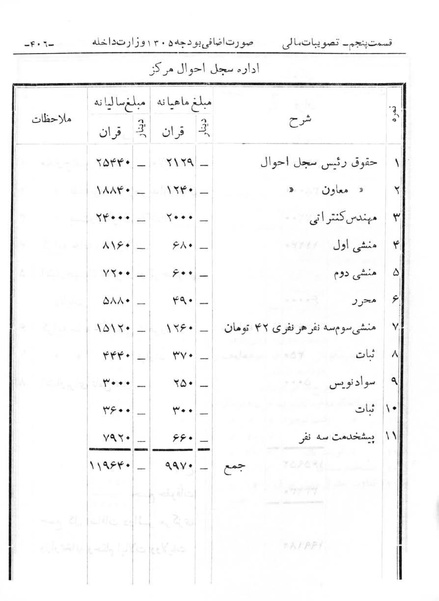 قسمت پنجم ـ تصویبات مالی صورت اضافی بودجه ۱۳۰۵ وزارت داخله ـ۴۰۶ـ
اداره سجل احوال مرکز
نمره شرح مبلغ ماهیانه مبلغ سالیانه ملاحظات
قران دینار قران دینار
۱ حقوق رئیس سجل احوال ـ ۲۱۲۹ ـ ۲۵۴۴۰
۲ » معاون » ـ ۱۲۴۰ ـ ۱۸۸۴۰
۳ مهندس کنتراتی ـ ۲۰۰۰ ـ ۲۴۰۰۰
۴ منشی اول ـ ۶۸۰ ـ ۸۱۶۰
۵ منشی دوم ـ ۶۰۰ ـ ۷۲۰۰
۶ محرر ـ ۴۹۰ ـ ۵۸۸۰
۷ منشی سوم سه نفر هر نفری ۴۲ تومان ـ ۱۲۶۰ ـ ۱۵۱۲۰
۸ ثبات ـ ۳۷۰ ـ ۴۴۴۰
۹ سواد نویس ـ ۲۵۰ ـ ۳۰۰۰
۱۰ ثبات ـ ۳۰۰ ـ ۳۶۰۰
۱۱ پیشخدمت سه نفر ـ ۶۶۰ ـ ۷۹۲۰
جمع ـ ۹۹۷۰ ـ ۱۱۹۶۴۰